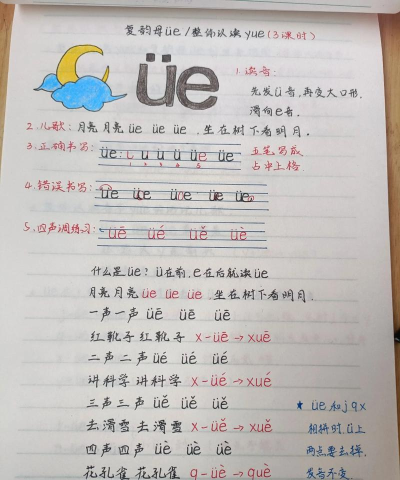 复韵母üe/整体认读yue(3课时)
üe
1.读音:
先发ü音,再变大口形,
滑向e音.
2.儿歌:月亮月亮 üe üe üe,坐在树下看明月.
3.正确书写:üe: ü üe
五笔写成
占中上格
4.错误书写:üe üe üe üe üe
5.四声调练习:üē üé üě üè
什么是üe?ü在前,e在后就读üe
月亮月亮 üe üe üe,坐在树下看明月.
一声一声 üē üē üē
红靴子红靴子 x-üē→xuē
二声二声 üé üé üé
讲科学讲科学 x-üé→xué
三声三声 üě üě üě
去滑雪去滑雪 x-üě→xuě
四声四声 üè üè üè
花孔雀 花孔雀 q-üè→què
★ üe和jqx
相拼时,ü上
两点要去掉,
发音不变.